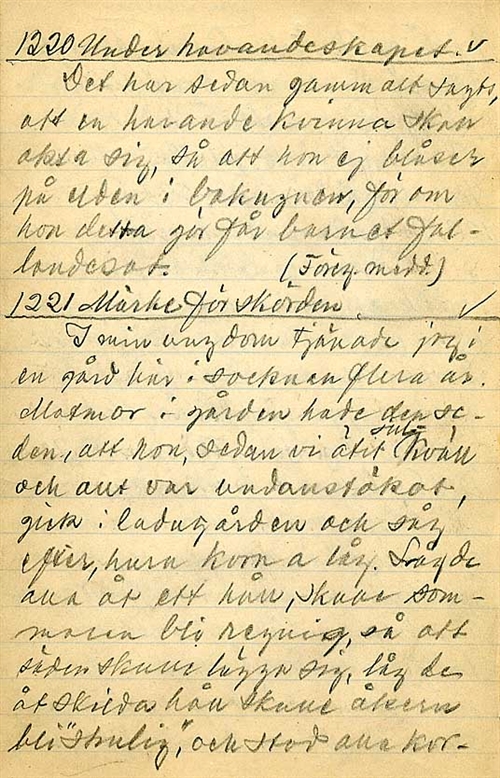 1220 Under havandeskapet. v
Det har sedan gammalt sagts,
att en havande kvinna skall
akta sig, så att hon ej blåser
på elden i bakugnen, för om
hon detta gör får barnet fal-
landesot. (Föreg. medd.)
1221 Märke för skörden. v
I min ungdom tjänade jag i
en gård här i socknen flera år.
Matmor i gården hade den se-
den, att hon, sedan vi ätit jul-kväll
och allt var undanstökat,
gick i ladugården och såg
efter, huru korna låg. Låg de
alla åt ett håll, skulle som-
maren bli regnig, så att
säden skulle lägga sig, låg de
åt skilda håll skulle åkern
bli "strulig", och stod alla kor-